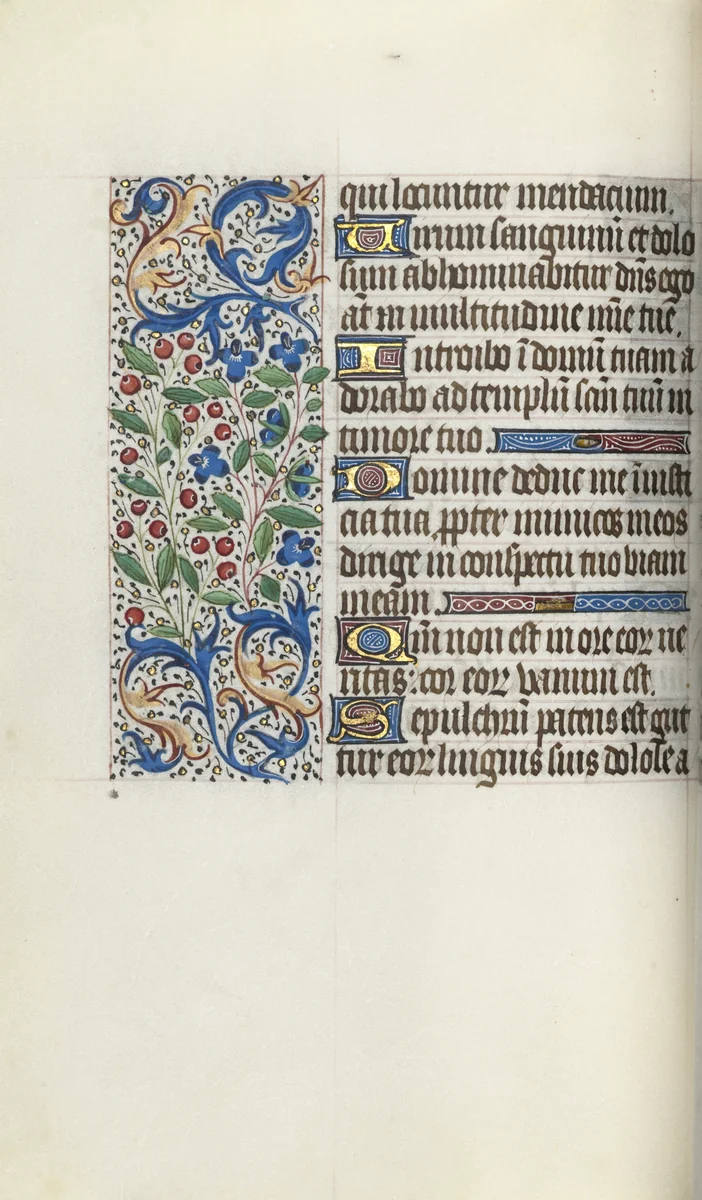 qui locuntur mendacium.
Uirum sanguinũ et dolo
sum abhominabitur dñs ego
aũt in multitudine mĩe tue.
Introibo ĩ domũ tuam a
dorabo ad templũ scm̃ tuũ in
timore tuo
Domine deduc me ĩ iusti
cia tua ꝓpter inimicos meos
dirige in conspectu tuo viam
meam.
Qm̃ non est in ore eoꝝ ue
ritas: cor eoꝝ vanum est.
Sepulchrũ patens est gut
tur eoꝝ linguis suis dolose a